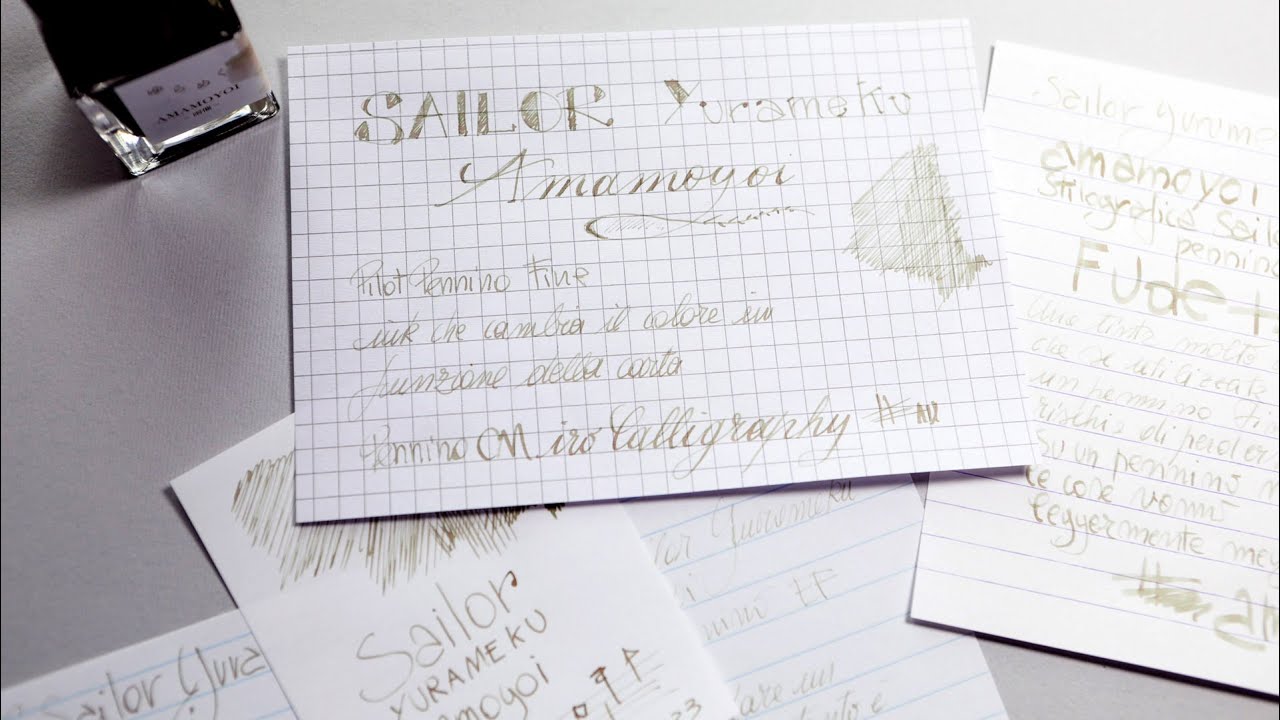 AMAMOYOI
SAILOR Yurameku
Amamoyoi
Pilot Pennino Fine
ink che cambia il colore in
funzione della carta
Pennino Calligraphy
Sailor Yurame
amamoyoi
Stilografica Sail
pennino
Fude
Una tinta molto
che se utilizzata
un pennino fin
rischia di perder
Su un pennino
le cose vanno
leggermente meg
Sailor
YURAMEKU
amoyoi
23
Yurameku
EF
dare un
Sailor Yura